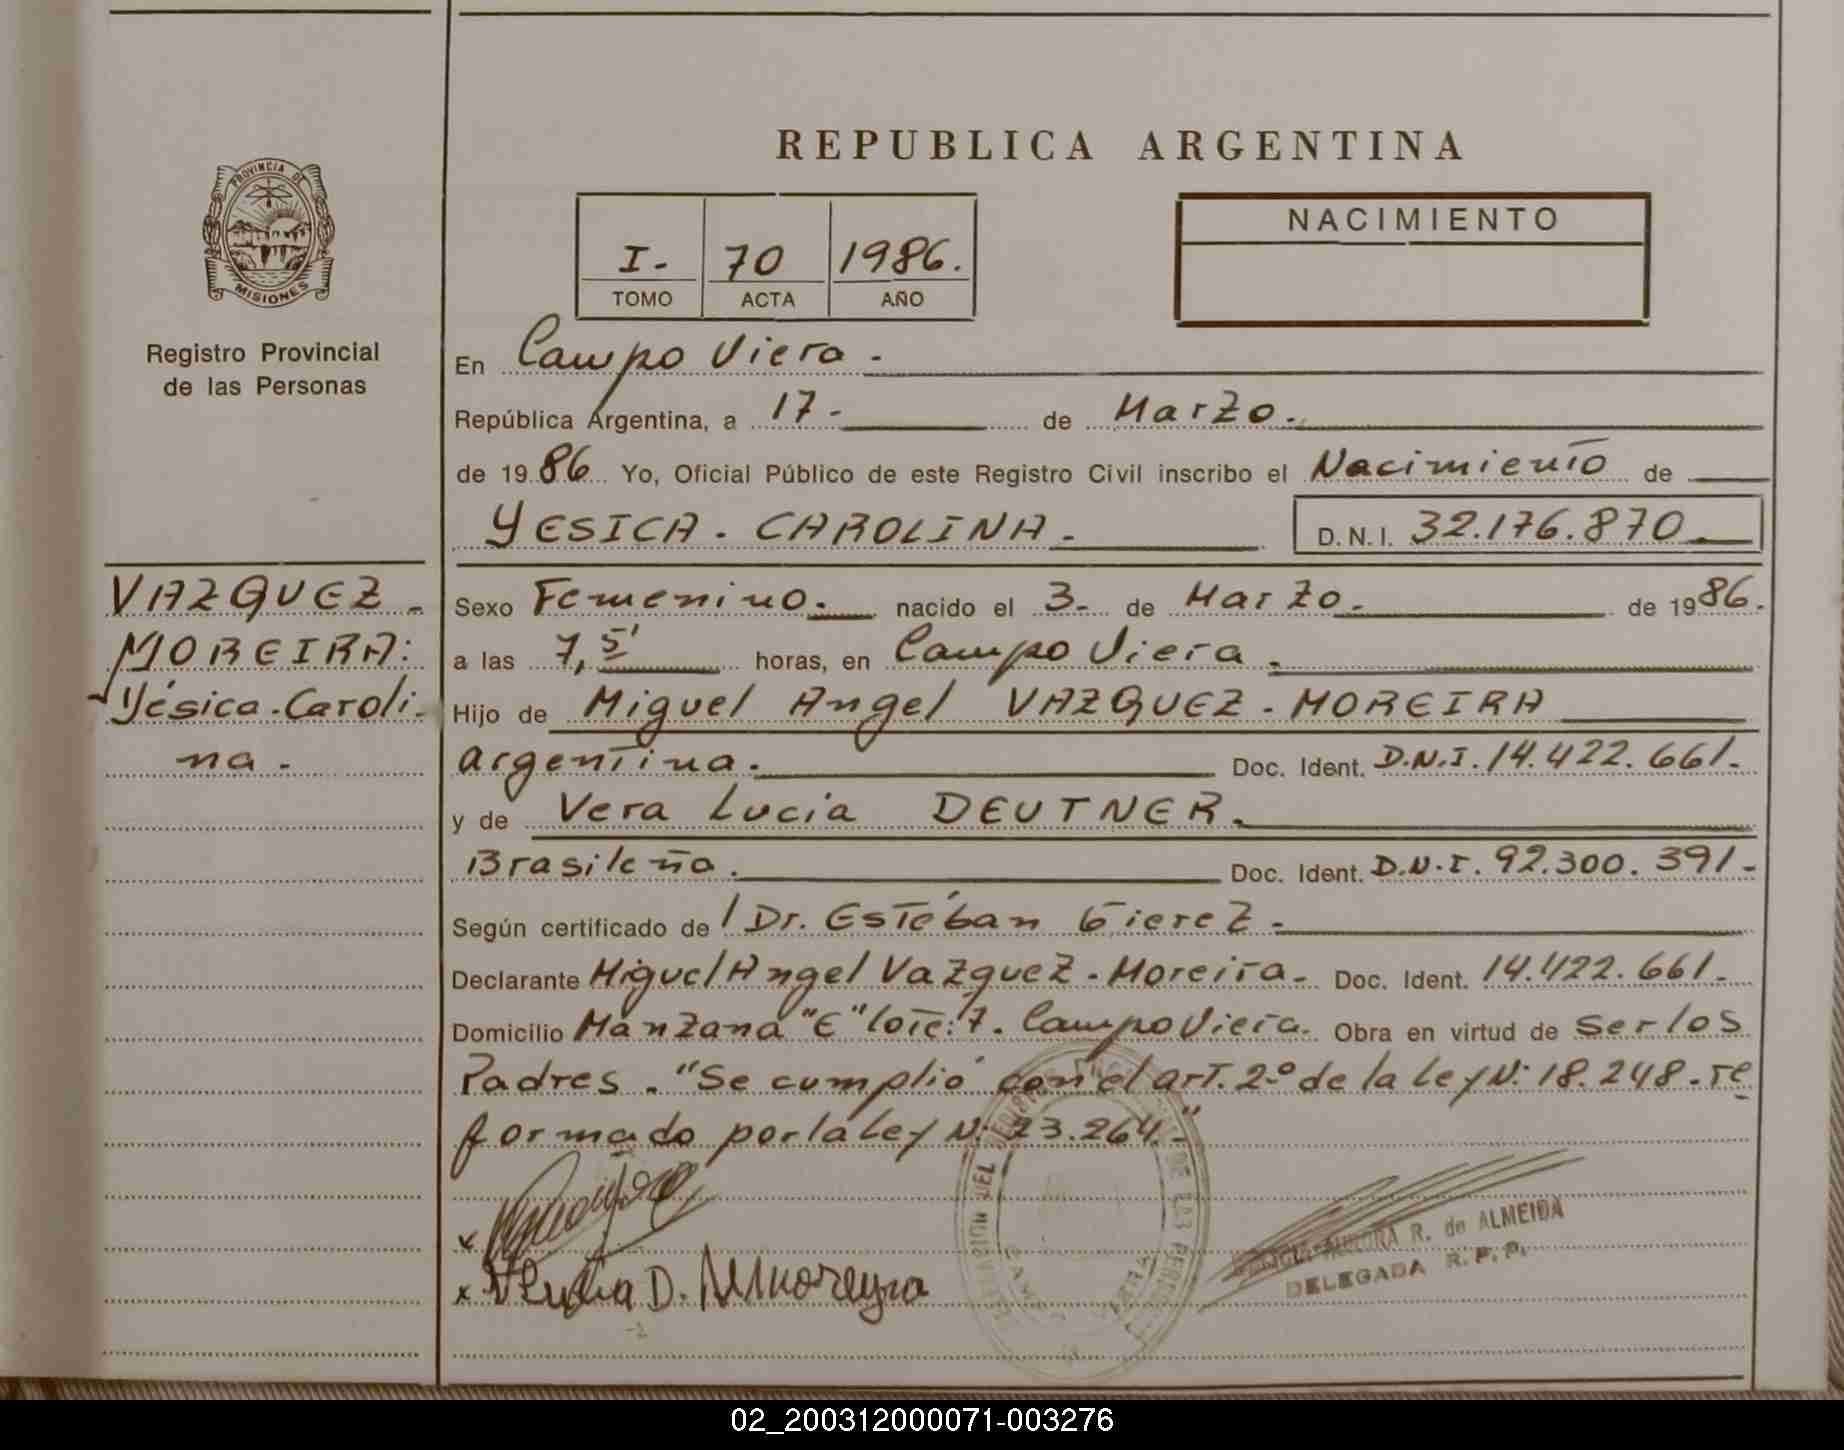 REPUBLICA ARGENTINA
PROVINCIA DE
MISIONES
Registro Provincial
de las Personas
I- 70 1986.
TOMO ACTA AÑO
NACIMIENTO
En Campo Viera -
República Argentina, a 17- de Marzo.
de 1986 Yo, Oficial Público de este Registro Civil inscribo el Nacimiento de
YESICA. CAROLINA. D.N.I. 32.176.870
VAZQUEZ -
MOREIRA:
Yésica. Caroli-
na.
Sexo Femenino. nacido el 3- de Marzo. de 1986.
a las 7,5' horas, en Campo Viera.
Hijo de Miguel Angel VAZQUEZ - MOREIRA
argentina. Doc. Ident. D.N.I. 14.422.661.-
y de Vera Lucia DEUTNER.
Brasileña. Doc. Ident. D.N.I. 92.300.391-
Según certificado de Dr. Estéban Gierez -
Declarante Miguel Angel Vazquez - Moreira. Doc. Ident. 14.422.661.
Domicilio Manzana "E" lote: 7. Campo Viera. Obra en virtud de ser los
Padres. "Se cumplió con el art. 2º de la ley N: 18.248. re
formado por la Ley N: 23.264."
x
x D.
R. de ALMEIDA
DELEGADA R.P.P.
02_200312000071-003276